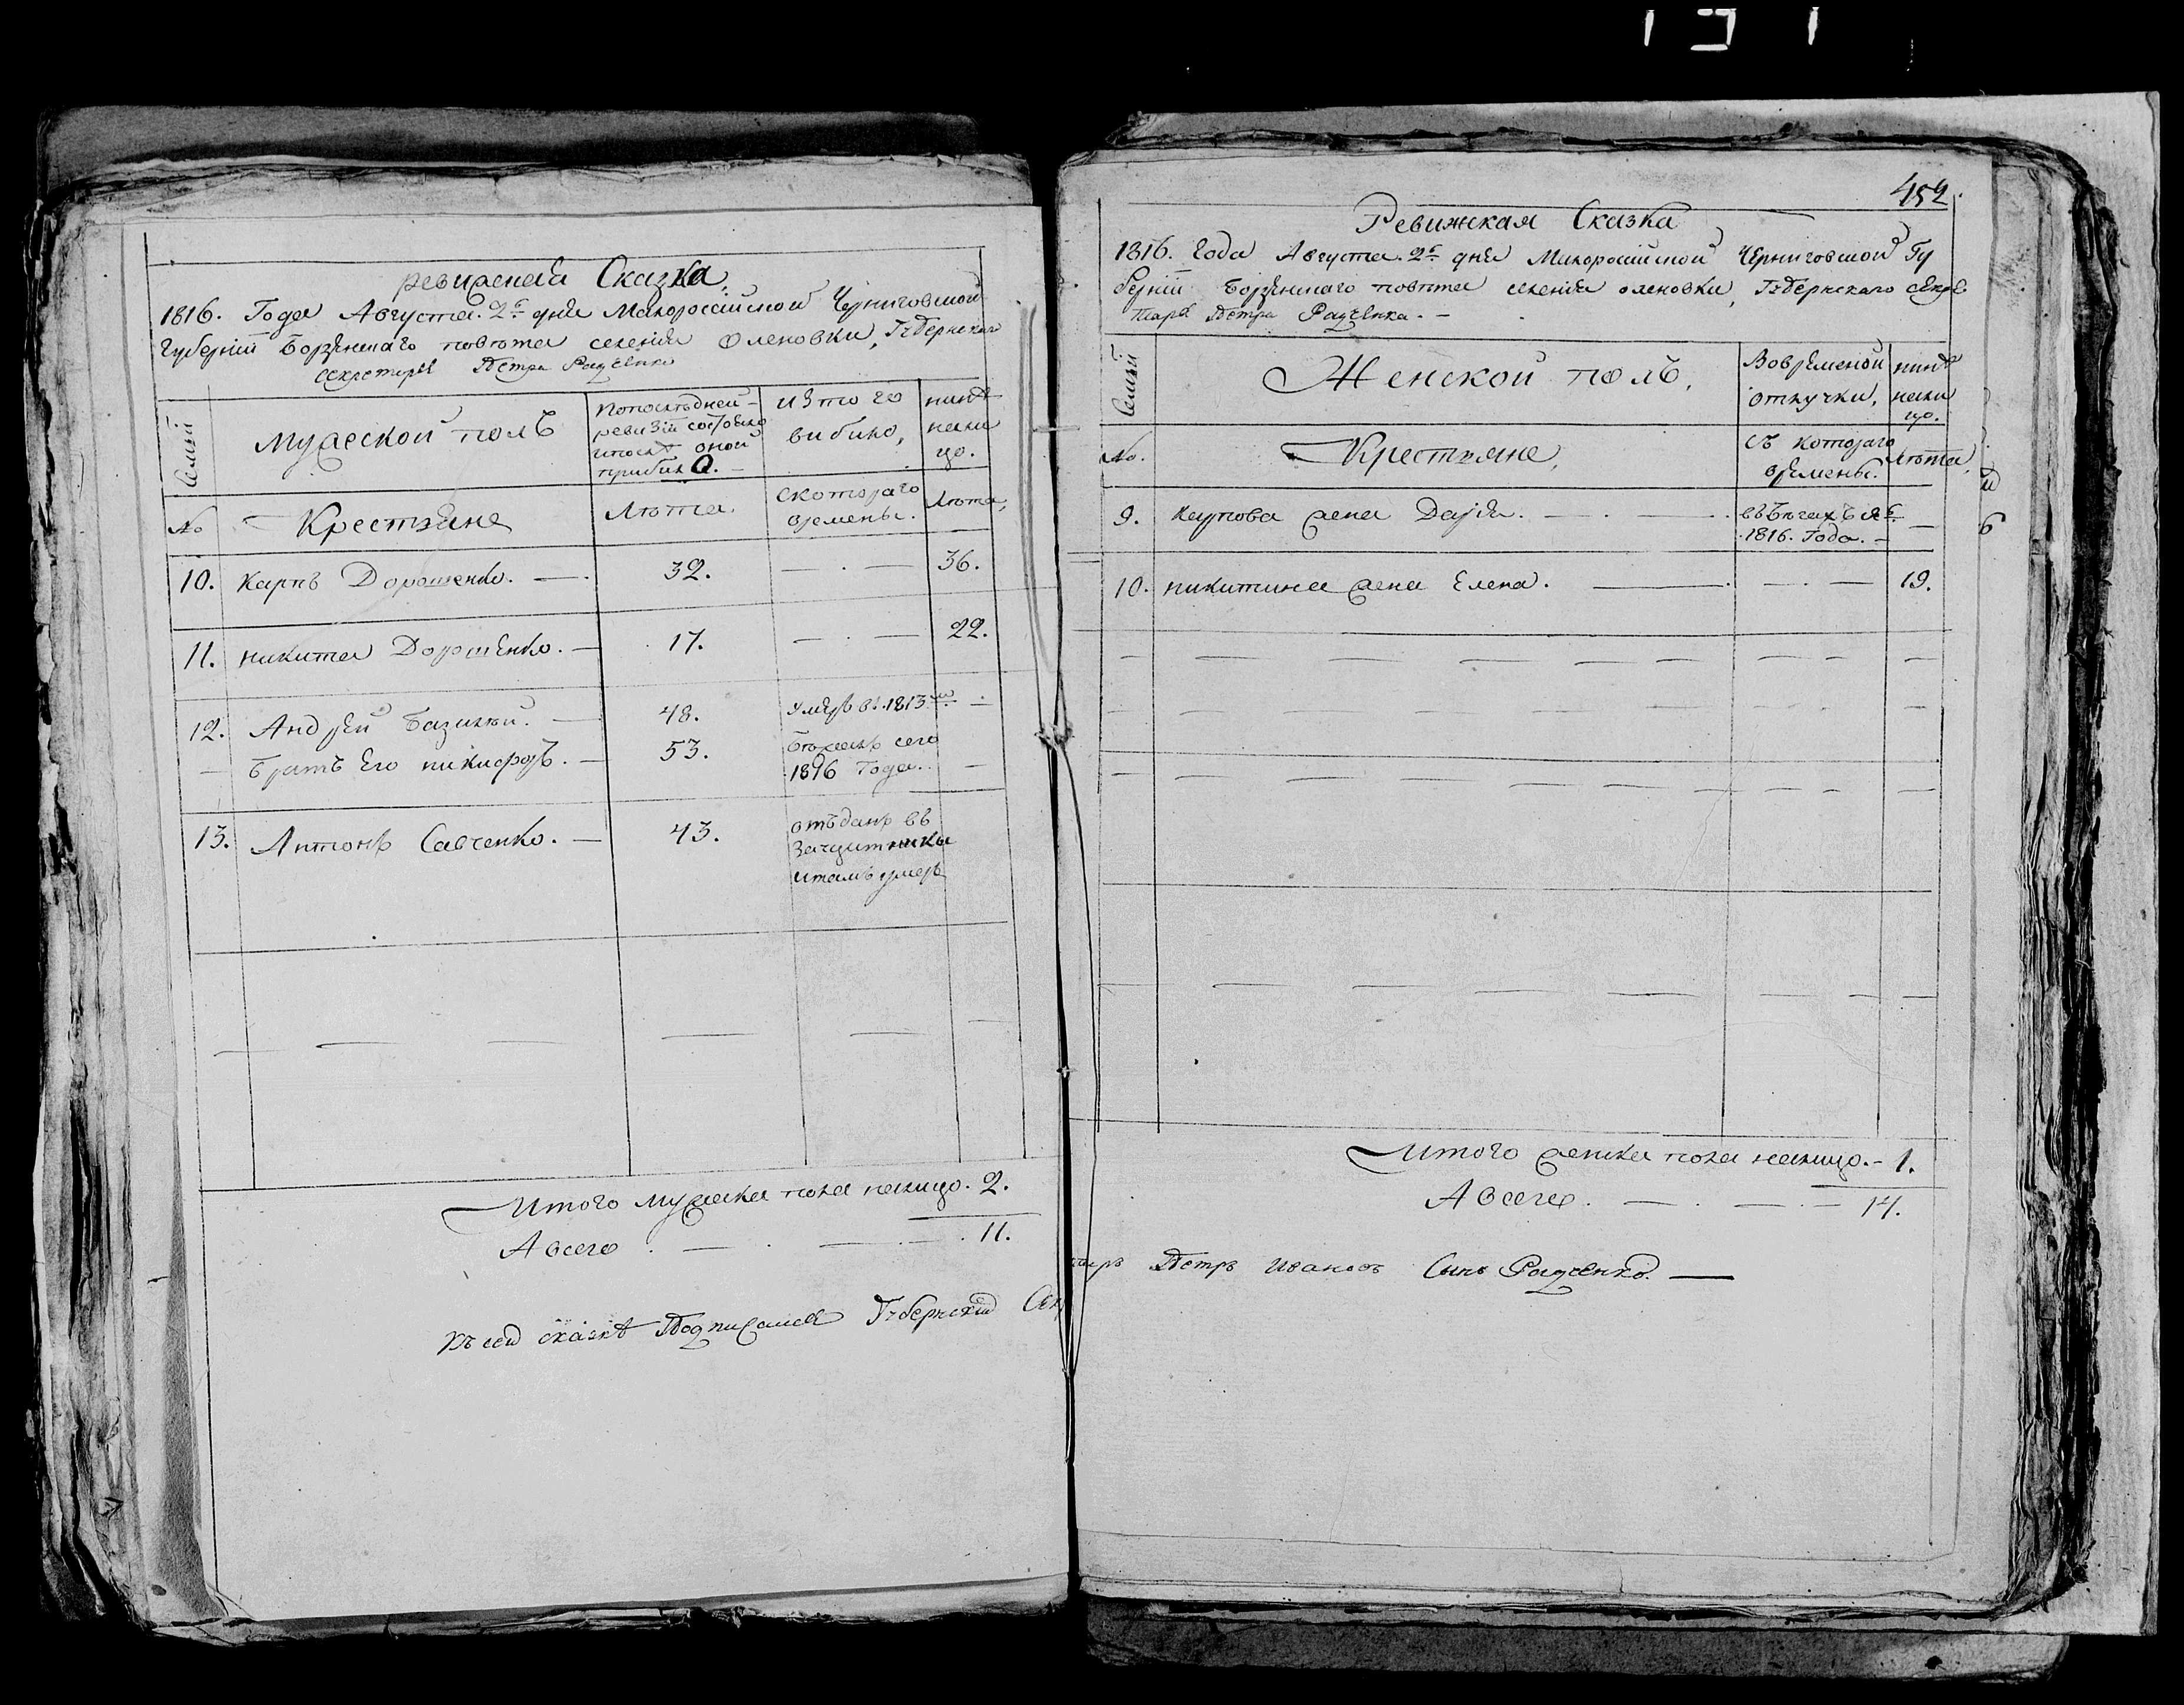 ревижская Сказка,
1816. Года Августа. 2г дня Малоросiйской Черниговской
Губернiи Борзенскаго повѣта селения Оленовки, Губернскаго
секретаря Петра Радченка
Семьи
Мужеской полъ
Попоследней
ревизiи состояло
ипосле оной
прибило.
изтого
вибило,
нинѣ
нали
цо.
No
Крестьяне
Лѣта.
скотораго
времены.
Лѣта,
10. Карпъ Дорошенко. — 32. — . — 36.
11. никита Дорошенко. — 17. — . — 22.
12. Андрей Базилюй. — 48. умеръ в. 1813м —
— братъ Его никифоръ. — 53. бѣжалъ сего
1816 Года. —
13. Антонъ Савченко. — 43. отъданъ въ
Защитники
итамъ умеръ
Итого мужеска пола налицо. 2.
А всего . — . — . 11.
Къ сей сказкѣ Подписался Губернскiй Сек
452.
Ревижская Сказка
1816. Года Августа. 2г дня Малоросiйской Черниговской Гу
бернiи Борзенскаго повѣта селения оленовки, Губернскаго секре
таря Петра Радченка. —
Семьи
Женской полъ,
Вовременой
отлучки,
нинѣ
нали
цо.
No.
Крестьяне,
съ котораго
времены.
Лѣта,
9. карпова жена Дарья. — . — . въбегахъ Яг
1816. Года. — —
10. никитина жена Елена. — . — . — 19.
Итого женска пола налицо. — 1.
А всего. — . — . — 14.
таръ Петръ Ивановъ Сынъ Радченко. —